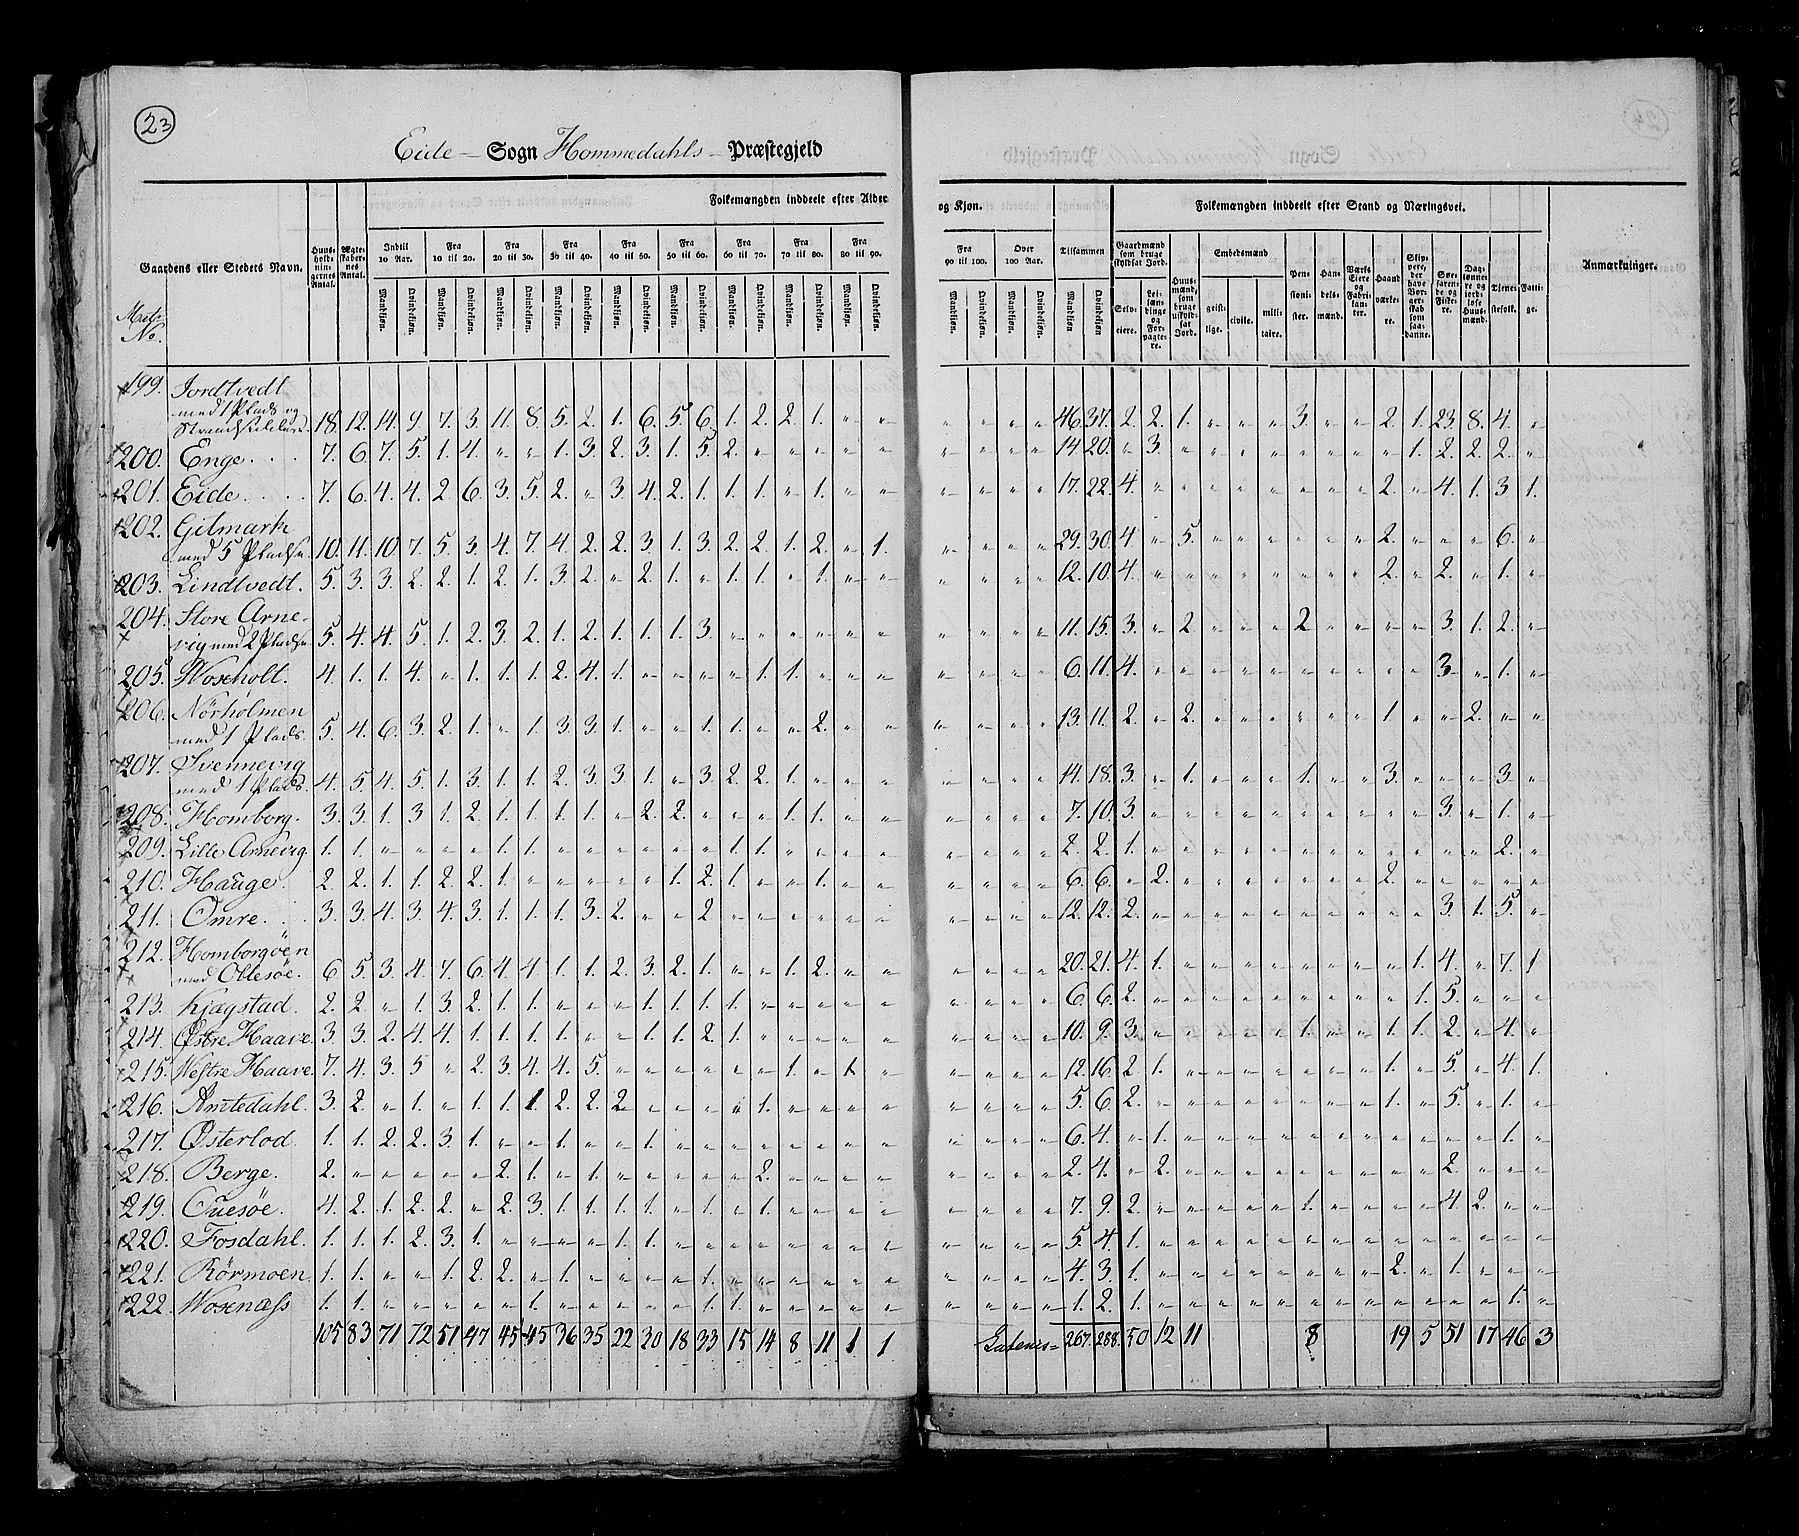 23
Eide Sogn Hommedahls Præstegjeld
Folkemængden inddeelt efter Alder og Kjøn.
Folkemængden inddeelt efter Stand og Næringsvei.
Matr. No.
Gaardens eller Stedets Navn.
Huusholdningernes Antal.
Ægteskabernes Antal.
Indtil 10 Aar.
Fra 10 til 20.
Fra 20 til 30.
Fra 30 til 40.
Fra 40 til 50.
Fra 50 til 60.
Fra 60 til 70.
Fra 70 til 80.
Fra 80 til 90.
Fra 90 til 100.
Over 100 Aar.
Tilsammen
Mandkjøn. Qvindekjøn.
Gaardmænd som bruge skyldsat Jord.
Selveiere.
Leilændinge og Forpagtere.
Huusmænd, som bruge uskyldsat Jord.
Embedsmænd
geistlige. civile. militaire.
Pensionister.
Handelsmænd.
Værks Eiere og Fabrikanter.
Haandværkere.
Skippere, der have Borgerskab som saadanne.
Søefarende og Fiskere.
Daglønnere og jordløse Huusmænd.
Tjenestefolk.
Fattige.
Anmærkninger.
199. Jordtvedt
med 1 Plads og
18. 12. 14. 9. 7. 3. 11. 8. 5. 2. 1. 6. 5. 6. 1. 2. 2. 1. " " " " " " 46. 37. 2. 2. 1. " " " 3. " " 2. 1. 23. 8. 4. "
200. Enge. 7. 6. 7. 5. 1. 4. " " 1. 3. 2. 3. 1. 5. 2. " " " " " " " " " 14. 20. " 3. " " " " " " " " 1. 2. 2. 2. "
201. Eide. 7. 6. 4. 4. 2. 6. 3. 5. 2. " 3. 4. 2. 1. 1. 1. " 1. " " " " " " 17. 22. 4. " " " " " " " " 2. " 4. 1. 3. 1.
202. Gitmark
med 5 Pladse. 10. 11. 10. 7. 5. 3. 4. 7. 4. 2. 2. 3. 1. 3. 2. 2. 1. 2. " 1 " " " " 29. 30. 4 " 5. " " " " " " 2. " " " 6. "
203. Lindtvedt. 5. 3. 3. 2. 2. 1. 2. 1. 3. 2. " 2. 1. " 1. 1. " 1. " " " " " " 12. 10. 4. " " " " " " " " 2. " 2. " 1. "
204. Store Arne-
vig med 2 Pladse 5. 4. 4. 5. 1. 2. 3. 2. 1. 2. 1. 1. 1. 3. " " " " " " " " " " 11. 15. 3. " 2 " " " 2 " " " " 3. 1. 2. "
205. Woseholt. 4. 1. 1. 4. " 1. 1. 1. 2. 4. 1. " " " " 1. 1. " " " " " " " 6. 11. 4. " " " " " " " " " " 3 " 1. "
206. Nörholmen
med 1 Plads. 5. 4. 6. 3. 2. 1. " 1. 3. 3. 1. " " 1. 1. " " 2. " " " " " " 13. 11. 2. " 2. " " " " " " 1. " " 2. " "
207. Svennevig
med 1 Plads. 4. 5. 4. 5. 1. 3. 1. 1. 2. 3. 3. 1. " 3. 2. 2. 1. " " " " " " " 14. 18. 3. " 1. " " " 1. " " 3. " " " 3. "
208. Homborg. 3. 3. 1. 3. 1. 2. 1. 1. 1. 1. " 2. 2. " " " 1. 1. " " " " " " 7. 10. 3. " " " " " " " " " " 3. " 1. "
209. Lille Arnevig. 1. 1. " " " " 1. 1. " " " " " " 1. 1. " " " " " " " " 2. 2. 1. " " " " " " " " " " " " 2. "
210. Hauge. 2. 2. 1. 1. 2. 2. 1. " " " " " 1. 2. 1. " " 1. " " " " " " 6. 6. " 2. " " " " " " " 2. " " " " "
211. Omre. 3. 3. 4. 3. 4. 3. 1. 1. 1. 3. 2. " " 2 " " " " " " " " " " 12. 12. 2. " " " " " " " " " " 3. 1. 5. "
212. Homborgöen
med Ollesöe. 6. 5. 3. 4. 7. 6. 4. 4. 1. 1. 2. 3. 2. 1. " " 1. 2. " " " " " " 20. 21. 4. 1. " " " " " " " " 1. 4. " 7. 1
213. Kjagstad. 2. 2. " 1. 3. 2. 1. 1. " " " 1. 1. 1. 1. " " " " " " " " " 6. 6. 2. " " " " " " " " " 1. 5. " " "
214. Østre Haave. 3. 3. 2. 4. 4. 1. 1. 1. 1. " " 1. 1. 2. 1. " " " " " " " " " 10. 9. 3. " " " " " 1. " " 1. 1. 2. " 4. "
215. Westre Haave. 7. 4. 3. 5 " 2. 3. 4. 4. 5. " " " " " " 1. " 1. " " " " " 12. 16. 2. 1. " " " " " " " 1. " 5. " 4. 1.
216. Amtedahl. 3. 2. " 1. " 1. 1. 1. 2. 2. 2. " " " " 1. " " " " " " " " 5. 6. 2. " " " " " " " " 1. " 5. " 1. "
217. Østerlod. 1. 1. 2. 2. 3. 1. " " 1. " " 1. " " " " " " " " " " " " 6. 4. " 1. " " " " " " " " " " " 1. "
218. Berge. 2. " " " " " 2. 1. " 1. " " " " " 2. " " " " " " " " 2. 4. " 2. " " " " " " " " " 2. " " "
219. Ouesöe. 4. 2. 1. 2. 2. " 2. 3. 1. 1. 1. 1. " 1. " 1. " " " " " " " " 7. 9. 2. " " " " " 1. " " " " 4. 2. " "
220. Fosdahl. 1. 1. 1. 2. 3. 1. " " " " 1. 1. " " " " " " " " " " " " 5. 4. 1. " " " " " " " " " " " " " "
221. Rörmoen. 1. 1. " " 1. 2. 2. " 1. " " " " 1. " " " " " " " " " " 4. 3. 1. " " " " " " " " 2. " 1. " " "
222. Wosenæss 1. 1. " " " " " 1. " " " " " 1. 1. " " " " " " " " " 1. 2. 1. " " " " " " " " " " " " 1. "
105 83 71 72 51 47 45 45 36 35 22 30 18 33 15 14 8 11 1 1 Lateris= 267. 288. 50 12 11 8 19 5 51 17 46 3